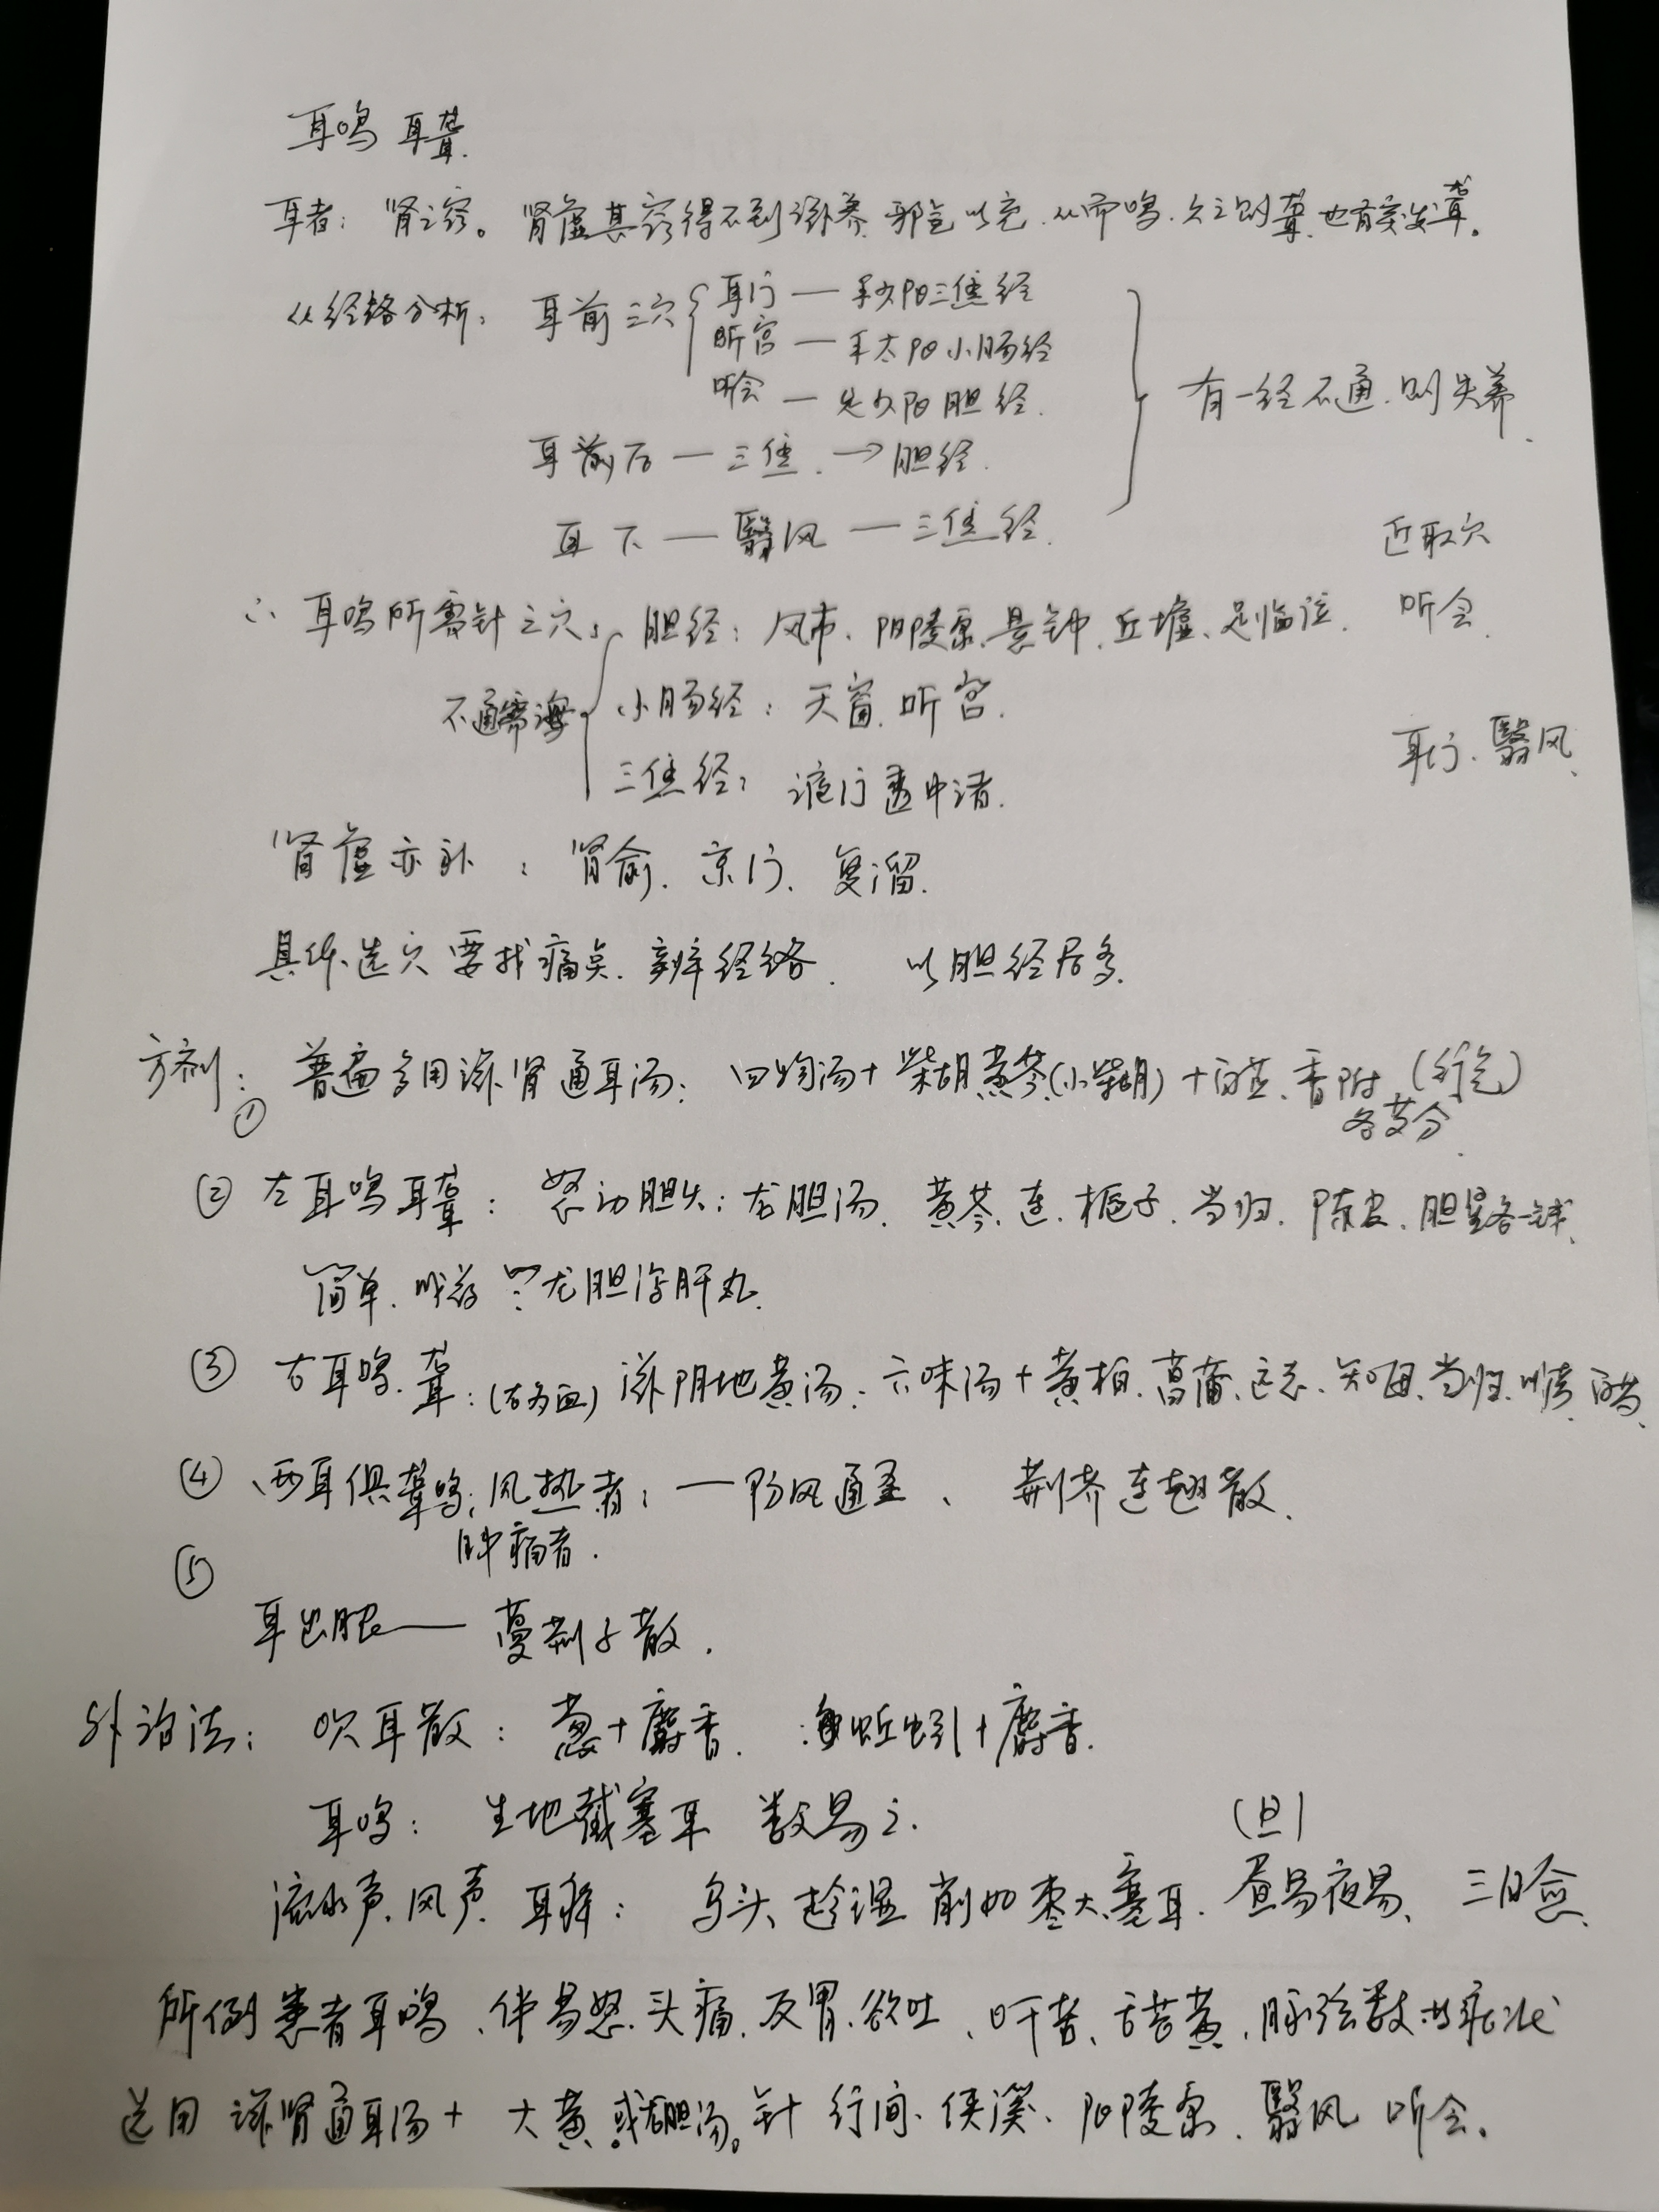 耳鸣 耳聋.
耳者: 肾之窍。肾虚其窍得不到滋养 邪气以充.从而鸣.久之则聋.也有突发聋。
从经络分析: 耳前三穴 耳门 — 手少阳三焦经
听宫 — 手太阳小肠经
听会 — 足少阳胆经.
耳前后 — 三焦. → 胆经.
耳下 — 翳风 — 三焦经.
有一经不通.则失养.
近取穴
∴ 耳鸣所需针之穴: 胆经: 风市、阳陵泉.悬钟.丘墟、足临泣. 听会.
不通需泻 小肠经: 天窗.听宫.
三焦经: 液门透中渚. 耳门.翳风.
肾虚亦补: 肾俞.京门.复溜.
具体选穴要找痛点.辨经络. 以胆经居多.
方剂: ① 普遍多用滋肾通耳汤: 四物汤+柴胡黄芩(小柴胡)+白芷.香附(行气)
各艾分.
② 左耳鸣耳聋: 怒动胆火: 龙胆汤. 黄芩.连.栀子.当归.陈皮.胆星各一钱.
简单. 龙胆泻肝丸.
③ 右耳鸣.聋: 滋阴地黄汤: 六味汤+黄柏.菖蒲.远志.知母.当归. 白芍.
④ 两耳俱聋鸣: 风热者: — 防风通圣、荆芥连翘散.
肿痛者.
⑤
耳出脓 — 蔓荆子散.
外治法: 吹耳散: 葱+麝香. 蚯蚓+麝香.
耳鸣: 生地截塞耳 数易之.
(旦)
流水声.风声.耳痒: 乌头趁湿削如枣大.塞耳.昼易夜易、三日愈.
所例患者耳鸣.伴易怒.头痛.反胃.欲吐.口干苦、舌苔黄.脉弦数 症状
选用 滋肾通耳汤+大黄.或龙胆汤。针 行间.侠溪、阳陵泉.翳风 听会.